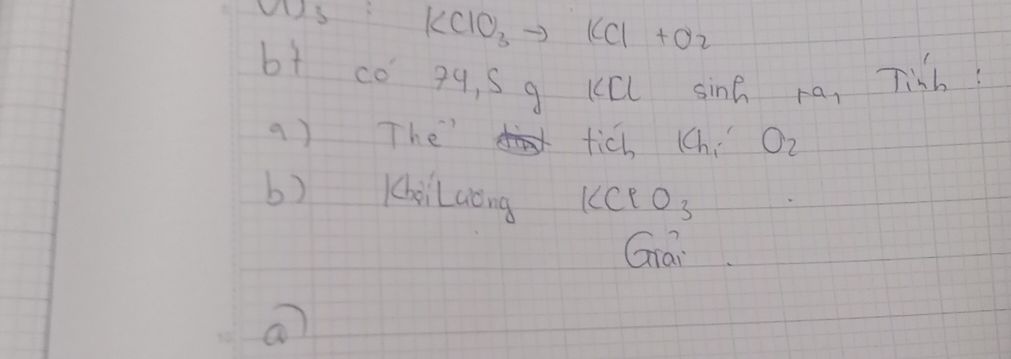 VD3 : KClO3 → KCl + O2
bt có 74,5 g KCl sinh ra, Tính :
a) Thể tích Khí O2
b) Khối Lượng KClO3
Giải.
a)